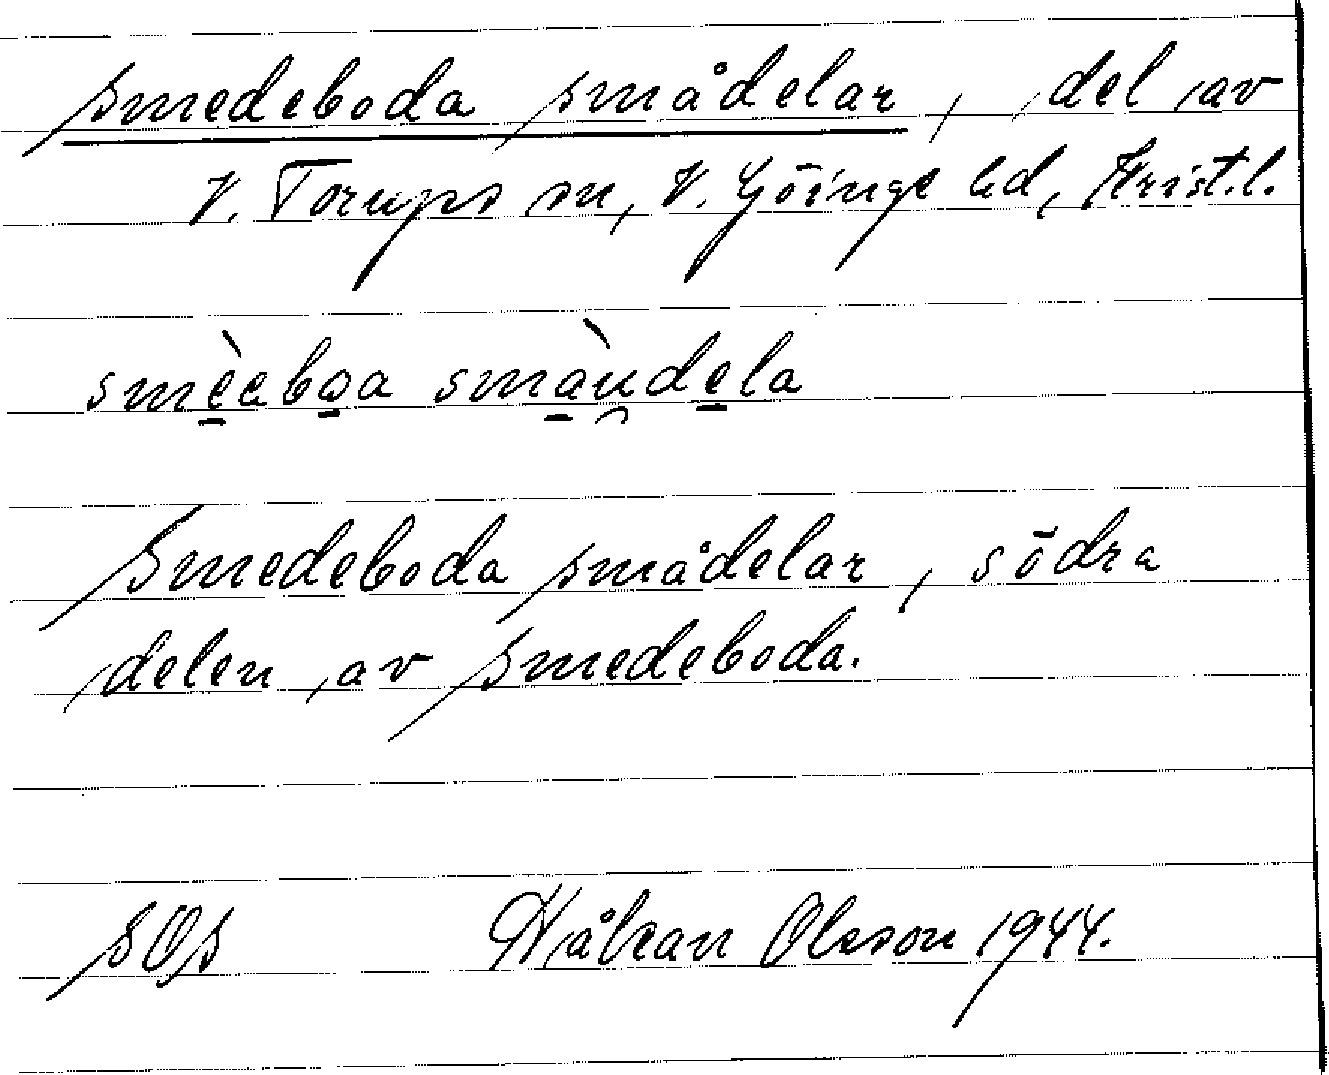 Smedeboda smådelar, del av
V. Torups sn, V. Göinge hd, Krist.l.
smèeboa smàu̯dela
Smedeboda smådelar, södra
delen av Smedeboda.
SOS Håkan Olsson 1944.